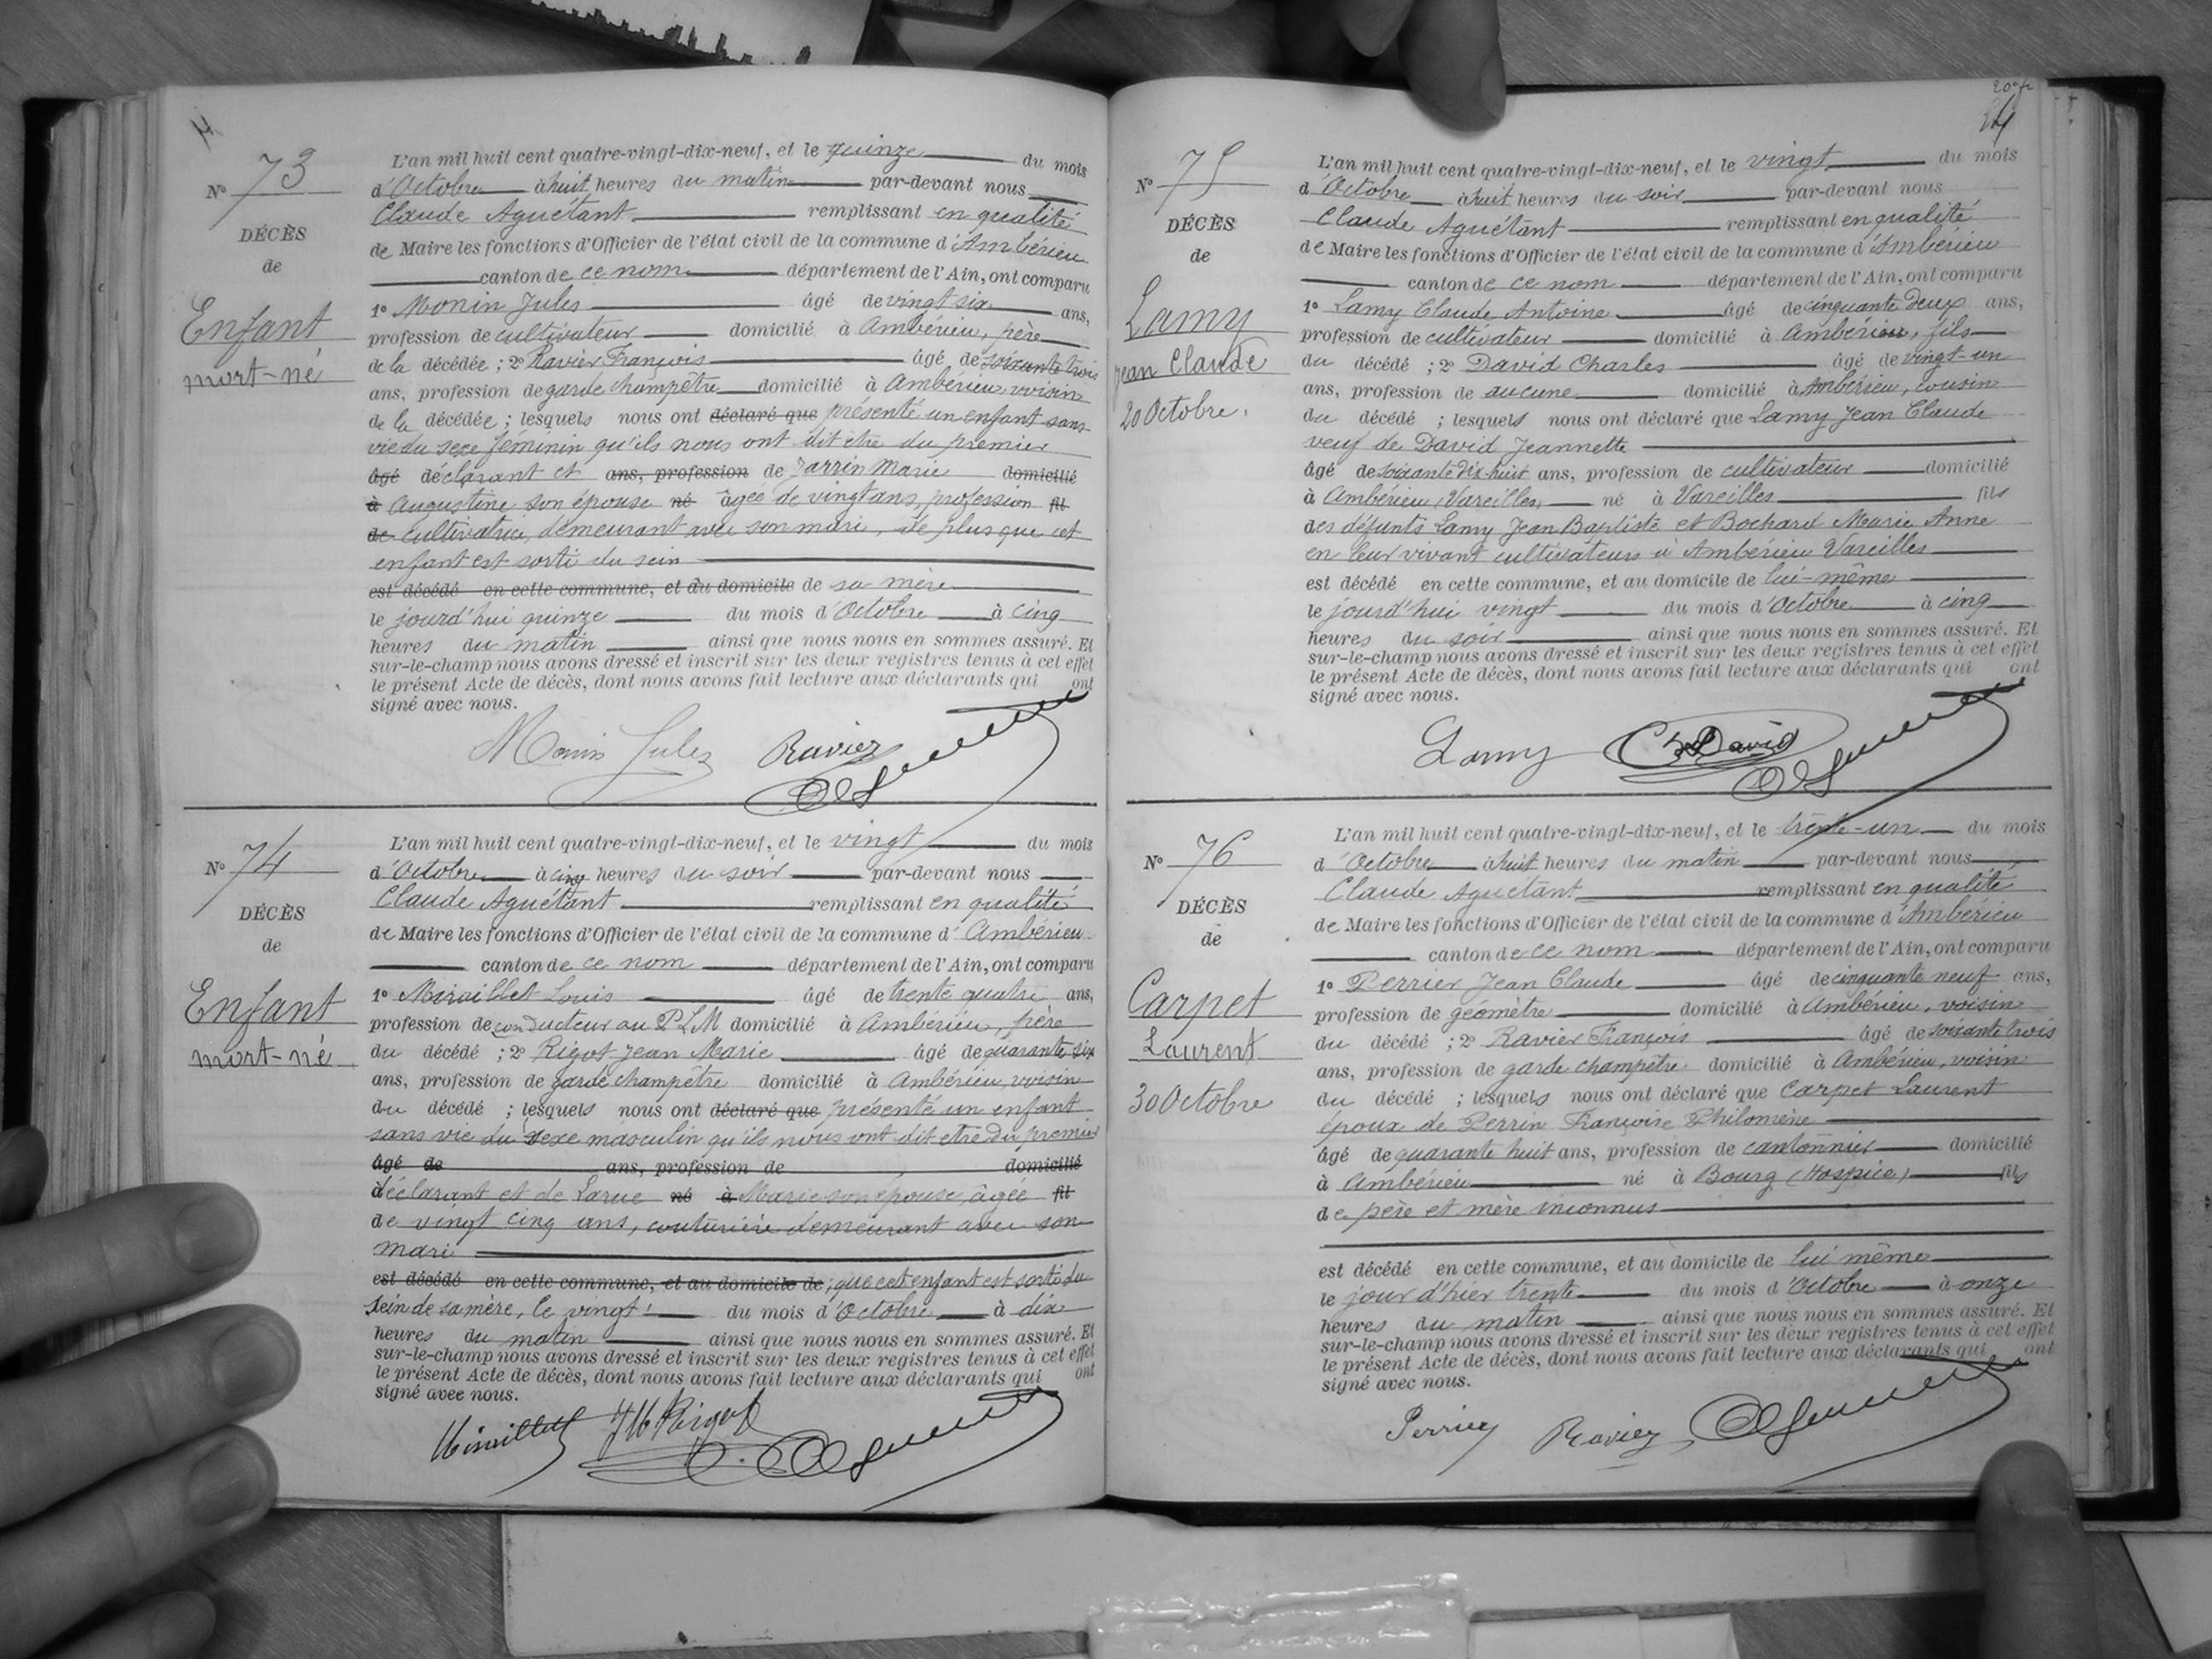 N° 73
DÉCÈS
de
Enfant
mort-né
L'an mil huit cent quatre-vingt-dix-neuf, et le quinze du mois
d'Octobre à huit heures du matin par-devant nous
Claude Aguétant remplissant en qualité
de Maire les fonctions d'Officier de l'état civil de la commune d'Ambérieu
canton de ce nom département de l'Ain, ont comparu
1° Monin Jules âgé de vingt six ans,
profession de cultivateur domicilié à Ambérieu, père
de la décédée ; 2° Ravier François âgé de soixante trois
ans, profession de garde champêtre domicilié à Ambérieu, voisin
de la décédée ; lesquels nous ont déclaré que présenté un enfant sans
vie du sexe féminin qu'ils nous ont dit être du premier
âgé déclarant et ans, profession de Jarrin Marie domicilié
à Augustine son épouse né âgée de vingt ans, profession fil
de cultivatrice, demeurant avec son mari, de plus que cet
enfant est sorti du sein
est décédé en cette commune, et du domicile de sa mère
le jourd'hui quinze du mois d'Octobre à cinq
heures du matin ainsi que nous nous en sommes assuré. Et
sur-le-champ nous avons dressé et inscrit sur les deux registres tenus à cet effet
le présent Acte de décès, dont nous avons fait lecture aux déclarants qui ont
signé avec nous.
Monin Jules Ravier
N° 74
DÉCÈS
de
Enfant
mort-né
L'an mil huit cent quatre-vingt-dix-neuf, et le vingt du mois
d'Octobre à cinq heures du soir par-devant nous
Claude Aguétant remplissant en qualité
de Maire les fonctions d'Officier de l'état civil de la commune d'Ambérieu
canton de ce nom département de l'Ain, ont comparu
1° Miraillet Louis âgé de trente quatre ans,
profession de conducteur au PLM domicilié à Ambérieu, père
du décédé ; 2° Rigot Jean Marie âgé de quarante six
ans, profession de garde champêtre domicilié à Ambérieu, voisin
du décédé ; lesquels nous ont déclaré que présenté un enfant
sans vie du sexe masculin qu'ils nous ont dit etre du premier
âgé de ans, profession de domicilié
déclarant et de Larue né à Marie son épouse, âgée fil
de vingt cinq ans, couturière demeurant avec son
mari
est décédé en cette commune, et au domicile de ; que cet enfant est sorti du
sein de sa mère, le vingt du mois d'Octobre à dix
heures du matin ainsi que nous nous en sommes assuré. Et
sur-le-champ nous avons dressé et inscrit sur les deux registres tenus à cet effet
le présent Acte de décès, dont nous avons fait lecture aux déclarants qui ont
signé avec nous.
Miraillet JM Rigot
N° 75
DÉCÈS
de
Lamy
Jean Claude
20 Octobre.
L'an mil huit cent quatre-vingt-dix-neuf, et le vingt du mois
d'Octobre à huit heures du soir par-devant nous
Claude Aguétant remplissant en qualité
de Maire les fonctions d'Officier de l'état civil de la commune d'Ambérieu
canton de ce nom département de l'Ain, ont comparu
1° Lamy Claude Antoine âgé de cinquante deux ans,
profession de cultivateur domicilié à Ambérieu, fils
du décédé ; 2° David Charles âgé de vingt-un
ans, profession de aucune domicilié à Ambérieu, cousin
du décédé ; lesquels nous ont déclaré que Lamy Jean Claude
veuf de David Jeannette
âgé de soixante dix-huit ans, profession de cultivateur domicilié
à Ambérieu (Vareilles) né à Vareilles fils
des défunts Lamy Jean Baptiste et Bochard Marie Anne
en leur vivant cultivateurs à Ambérieu Vareilles
est décédé en cette commune, et au domicile de lui-même
le jourd'hui vingt du mois d'Octobre à cinq
heures du soir ainsi que nous nous en sommes assuré. Et
sur-le-champ nous avons dressé et inscrit sur les deux registres tenus à cet effet
le présent Acte de décès, dont nous avons fait lecture aux déclarants qui ont
signé avec nous.
Lamy Ch David
N° 76
DÉCÈS
de
Carpet
Laurent
30 Octobre
L'an mil huit cent quatre-vingt-dix-neuf, et le trente-un du mois
d'Octobre à huit heures du matin par-devant nous
Claude Aguétant remplissant en qualité
de Maire les fonctions d'Officier de l'état civil de la commune d'Ambérieu
canton de ce nom département de l'Ain, ont comparu
1° Perrier Jean Claude âgé de cinquante neuf ans,
profession de géomètre domicilié à Ambérieu, voisin
du décédé ; 2° Ravier François âgé de soixante trois
ans, profession de garde champêtre domicilié à Ambérieu, voisin
du décédé ; lesquels nous ont déclaré que Carpet Laurent
époux de Perrin Françoise Philomène
âgé de quarante huit ans, profession de cantonnier domicilié
à Ambérieu né à Bourg (Hospice) fils
de père et mère inconnus
est décédé en cette commune, et au domicile de lui même
le jour d'hier trente du mois d'Octobre à onze
heures du matin ainsi que nous nous en sommes assuré. Et
sur-le-champ nous avons dressé et inscrit sur les deux registres tenus à cet effet
le présent Acte de décès, dont nous avons fait lecture aux déclarants qui ont
signé avec nous.
Perrier Ravier